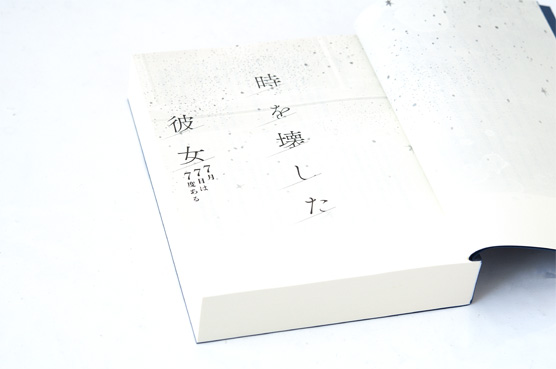 時を壊した
彼女
7月7日は7度ある